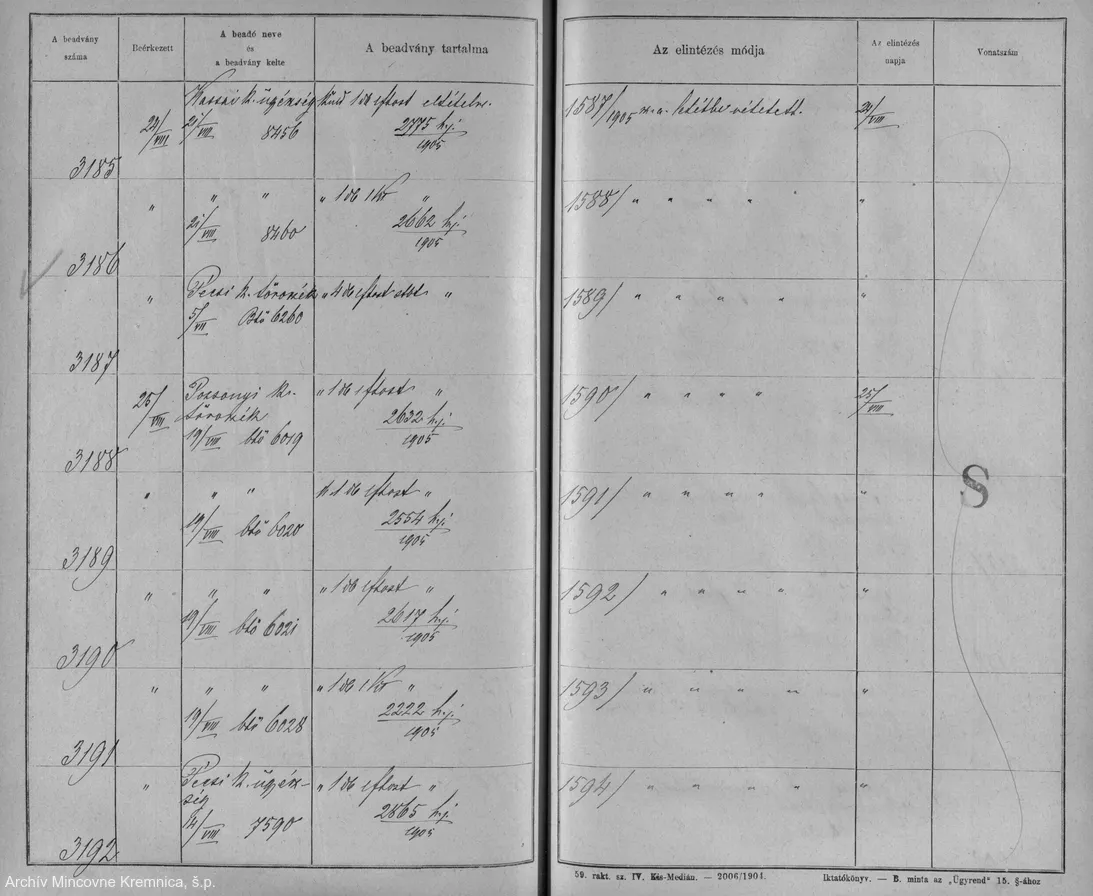 A beadvány száma
Beérkezett
A beadó neve és a beadvány kelte
A beadvány tartalma
Az elintézés módja
Az elintézés napja
Vonatszám
3185
24/VIII
Kassai k. ügyészség
21/VIII 8456
küld 1 db 1 ftost
2775 h.j.
1905
1587/1905 letétbe vétetett.
24/VIII
3186
" " "
21/VIII 8460
" 1 db 1 Kr "
2662 h.j.
1905
1588/ " " " "
"
3187
"
Pécsi k. törvszék
5/VII Btő 6260
" 4 db 1 ftost "
1589/ " " " "
"
3188
25/VIII
Pozsonyi k. törvszék
19/VIII btő 6019
" 1 db 1 ftost "
2632 h.j.
1905
1590/ " " " "
25/VIII
3189
" " "
19/VIII btő 6020
" 1 db 1 ftost "
2554 h.j.
1905
1591/ " " " "
"
S
3190
" " "
19/VIII btő 6021
" 1 db 1 ftost "
2617 h.j.
1905
1592/ " " " "
"
3191
" " "
19/VIII btő 6028
" 1 db 1 Kr "
2222 h.j.
1905
1593/ " " " "
"
3192
"
Pécsi k. ügyészség
14/VIII 7590
" 1 db 1 ftost "
2865 h.j.
1905
1594/ " " " "
"
59. rakt. sz. IV. Kés-Medián. — 2006/1904.
Iktatókönyv. — B. minta az „Ügyrend" 15. §-ához
Archív Mincovne Kremnica, š.p.